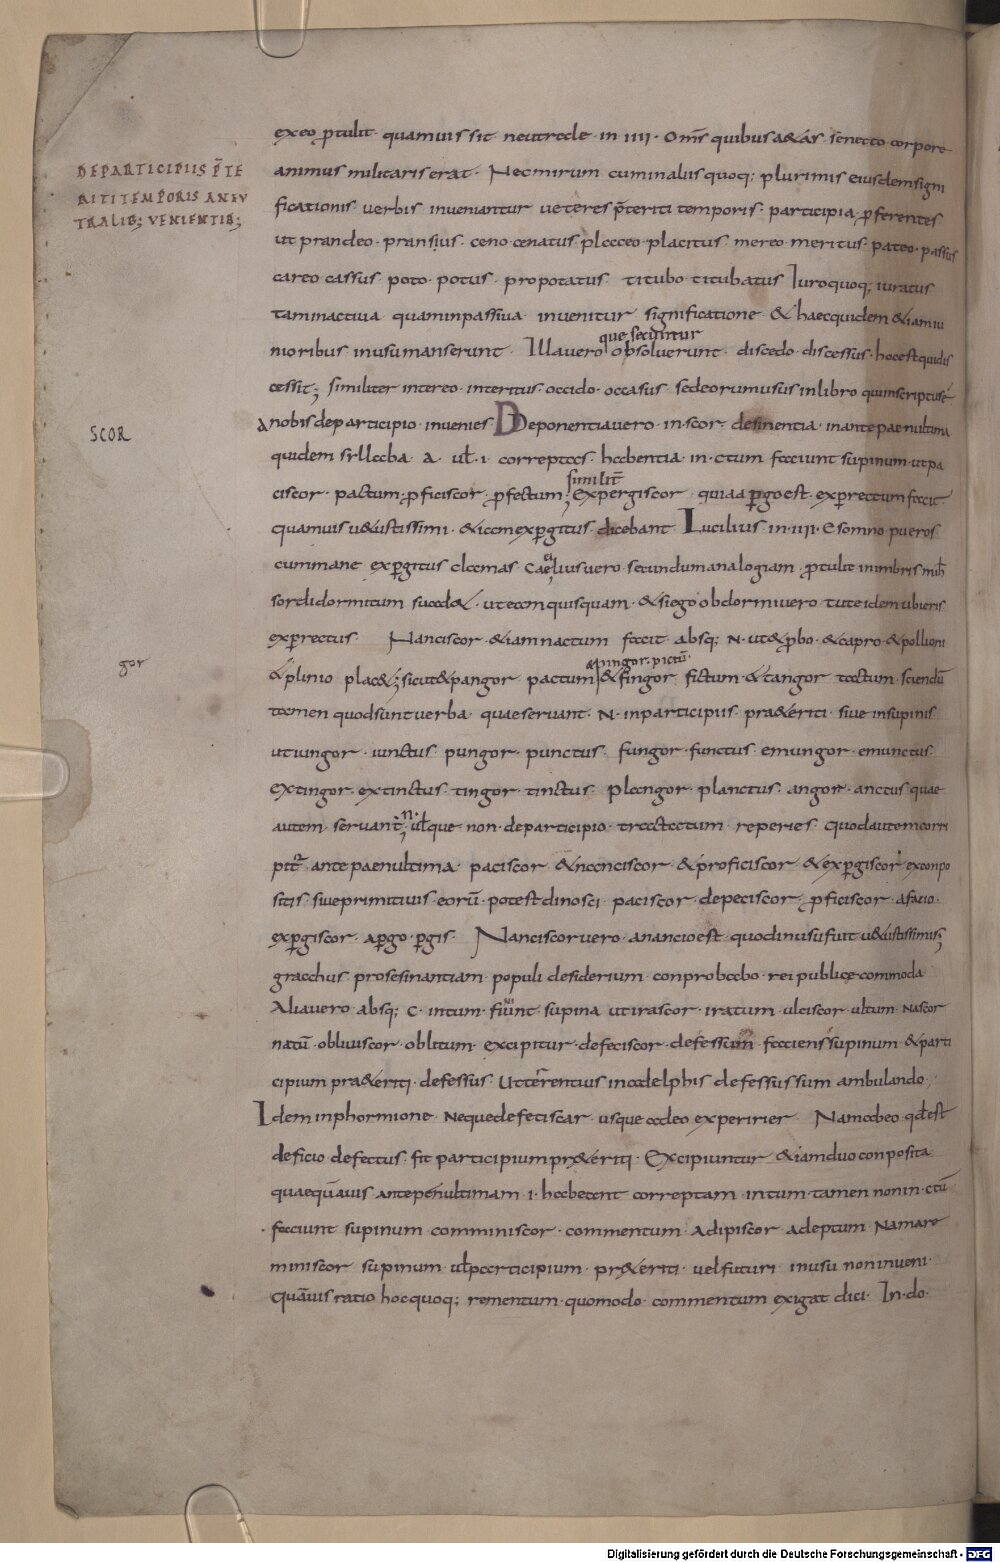 DE PARTICIPIIS P̄TE
RITI TEMPORIS A NEV
TRALIB; VENIENTIB;
SCOR
gor
exeo ptulit· quamuis sit neutrale· in IIII· Om̄s quibus a&as· senecto corpore
animus militaris erat· Nec mirum cum in aliis quoq; plurimis eiusdem signi
ficationis uerbis inueniantur ueteres p̄teriti temporis· participia pferentes
ut prandeo· pransius· ceno· cenatus· placeo· placitus· mereo· meritus· pateo· passus
careo cassus· poto· potus· propotatus· titubo· titubatus Iuro quoq; iuratus
tam in actiua quam in passiua inuenitur significatione· & haec quidem &iam iu
que secuntur
nioribus in usu manserunt· Illa uero obsoluerunt· discedo· discessus· hoc est qui dis
cessit; similiter intereo· interitus· occido· occasus· sed eorum usus in libro qui inscriptus ē
A nobis de participio· inuenies Deponentia uero· in·scor· desinentia in ante paenultima
quidem syllaba· a· ul· i· correptas· habentia· in·ctum· faciunt supinum· ut pa
similit̄
ciscor· pactum· pficiscor· pfectum; expergiscor· quia a pgo est· experrectum facit
quamuis u&ustissimi· & iam expgitus dicebant Lucilius in IIII· E somno pueros
cum mane expgitus clamas Caelius uero· secundum analogiam· ptulit in imbris mih
sordidor mitum suad&· ut eam quisquam· & si ego obdormiuero tute idem ubi eris
experrectus Nanciscor· &iam nactum facit absq; N· ut &pbo· & capro· & pollioni
a pingor· pictū·
& plinio plac&; sicut & pangor pactum & fingor fictum & tangor tactum· sciendū
tamen quod sunt uerba quae seruant· N· in participiis pra&eriti siue in supinis
ut iungor· iunctus pungor· punctus· fungor· functus· emungor· emunctus
extingor· extinctus· tingor· tinctus· plangor· planctus· angor· anctus quae
autem seruant n; ul que non· de participio· tractatum reperies· Quod autem corri
pit̄ ante paenultima paciscor & nanciscor & proficiscor & expgiscor ex conpo
sitis· siue primitiuis· eorū· potest dinosci paciscor· depeciscor· pficiscor· a facio·
expgiscor· a pgo· pgis· Nanciscor uero· a nancio est· quod in usu fuit u&ustissimis;
gracchus· pro se sinantiam· populi desiderium· conprobabo· rei publice commoda
Alia uero absq; C· in tum· fiunt supina ut irascor· iratum· ulciscor· ultum· Nascor
natū· obliuiscor· oblitum· excipitur· defeciscor· defessum faciens supinum & parti
cipium pra&eriti· defessus· Ut terentius in adelphis defessus sum ambulando;
Idem in phormione· Neque defetiscar usque adeo experirier Nam abeo qd est
deficio defectus· fit participium pr&eriti· Excipiuntur &iam duo conposita
quae quāuis antepenultimam· i· habeant correptam in tum tamen non in·ctū
faciunt supinum comminiscor· commentum· Adipiscor adeptum· Nam a re
miniscor supinum· ul participium· pr&eriti· uel futuri in usu non inueni·
Quāuis ratio hoc quoq; rementum· quomodo· commentum exigat dici· In·do·
Digitalisierung gefördert durch die Deutsche Forschungsgemeinschaft - DFG